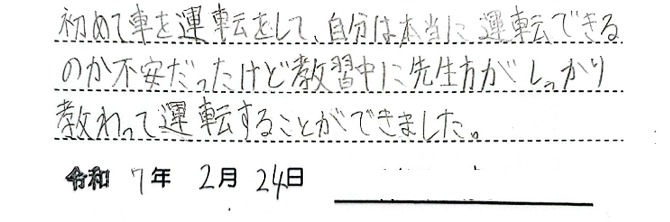 初めて車を運転をして、自分は本当に運転できる
のか不安だったけど教習中に先生方がしっかり
教わって運転することができました。
令和 7年 2月 24日